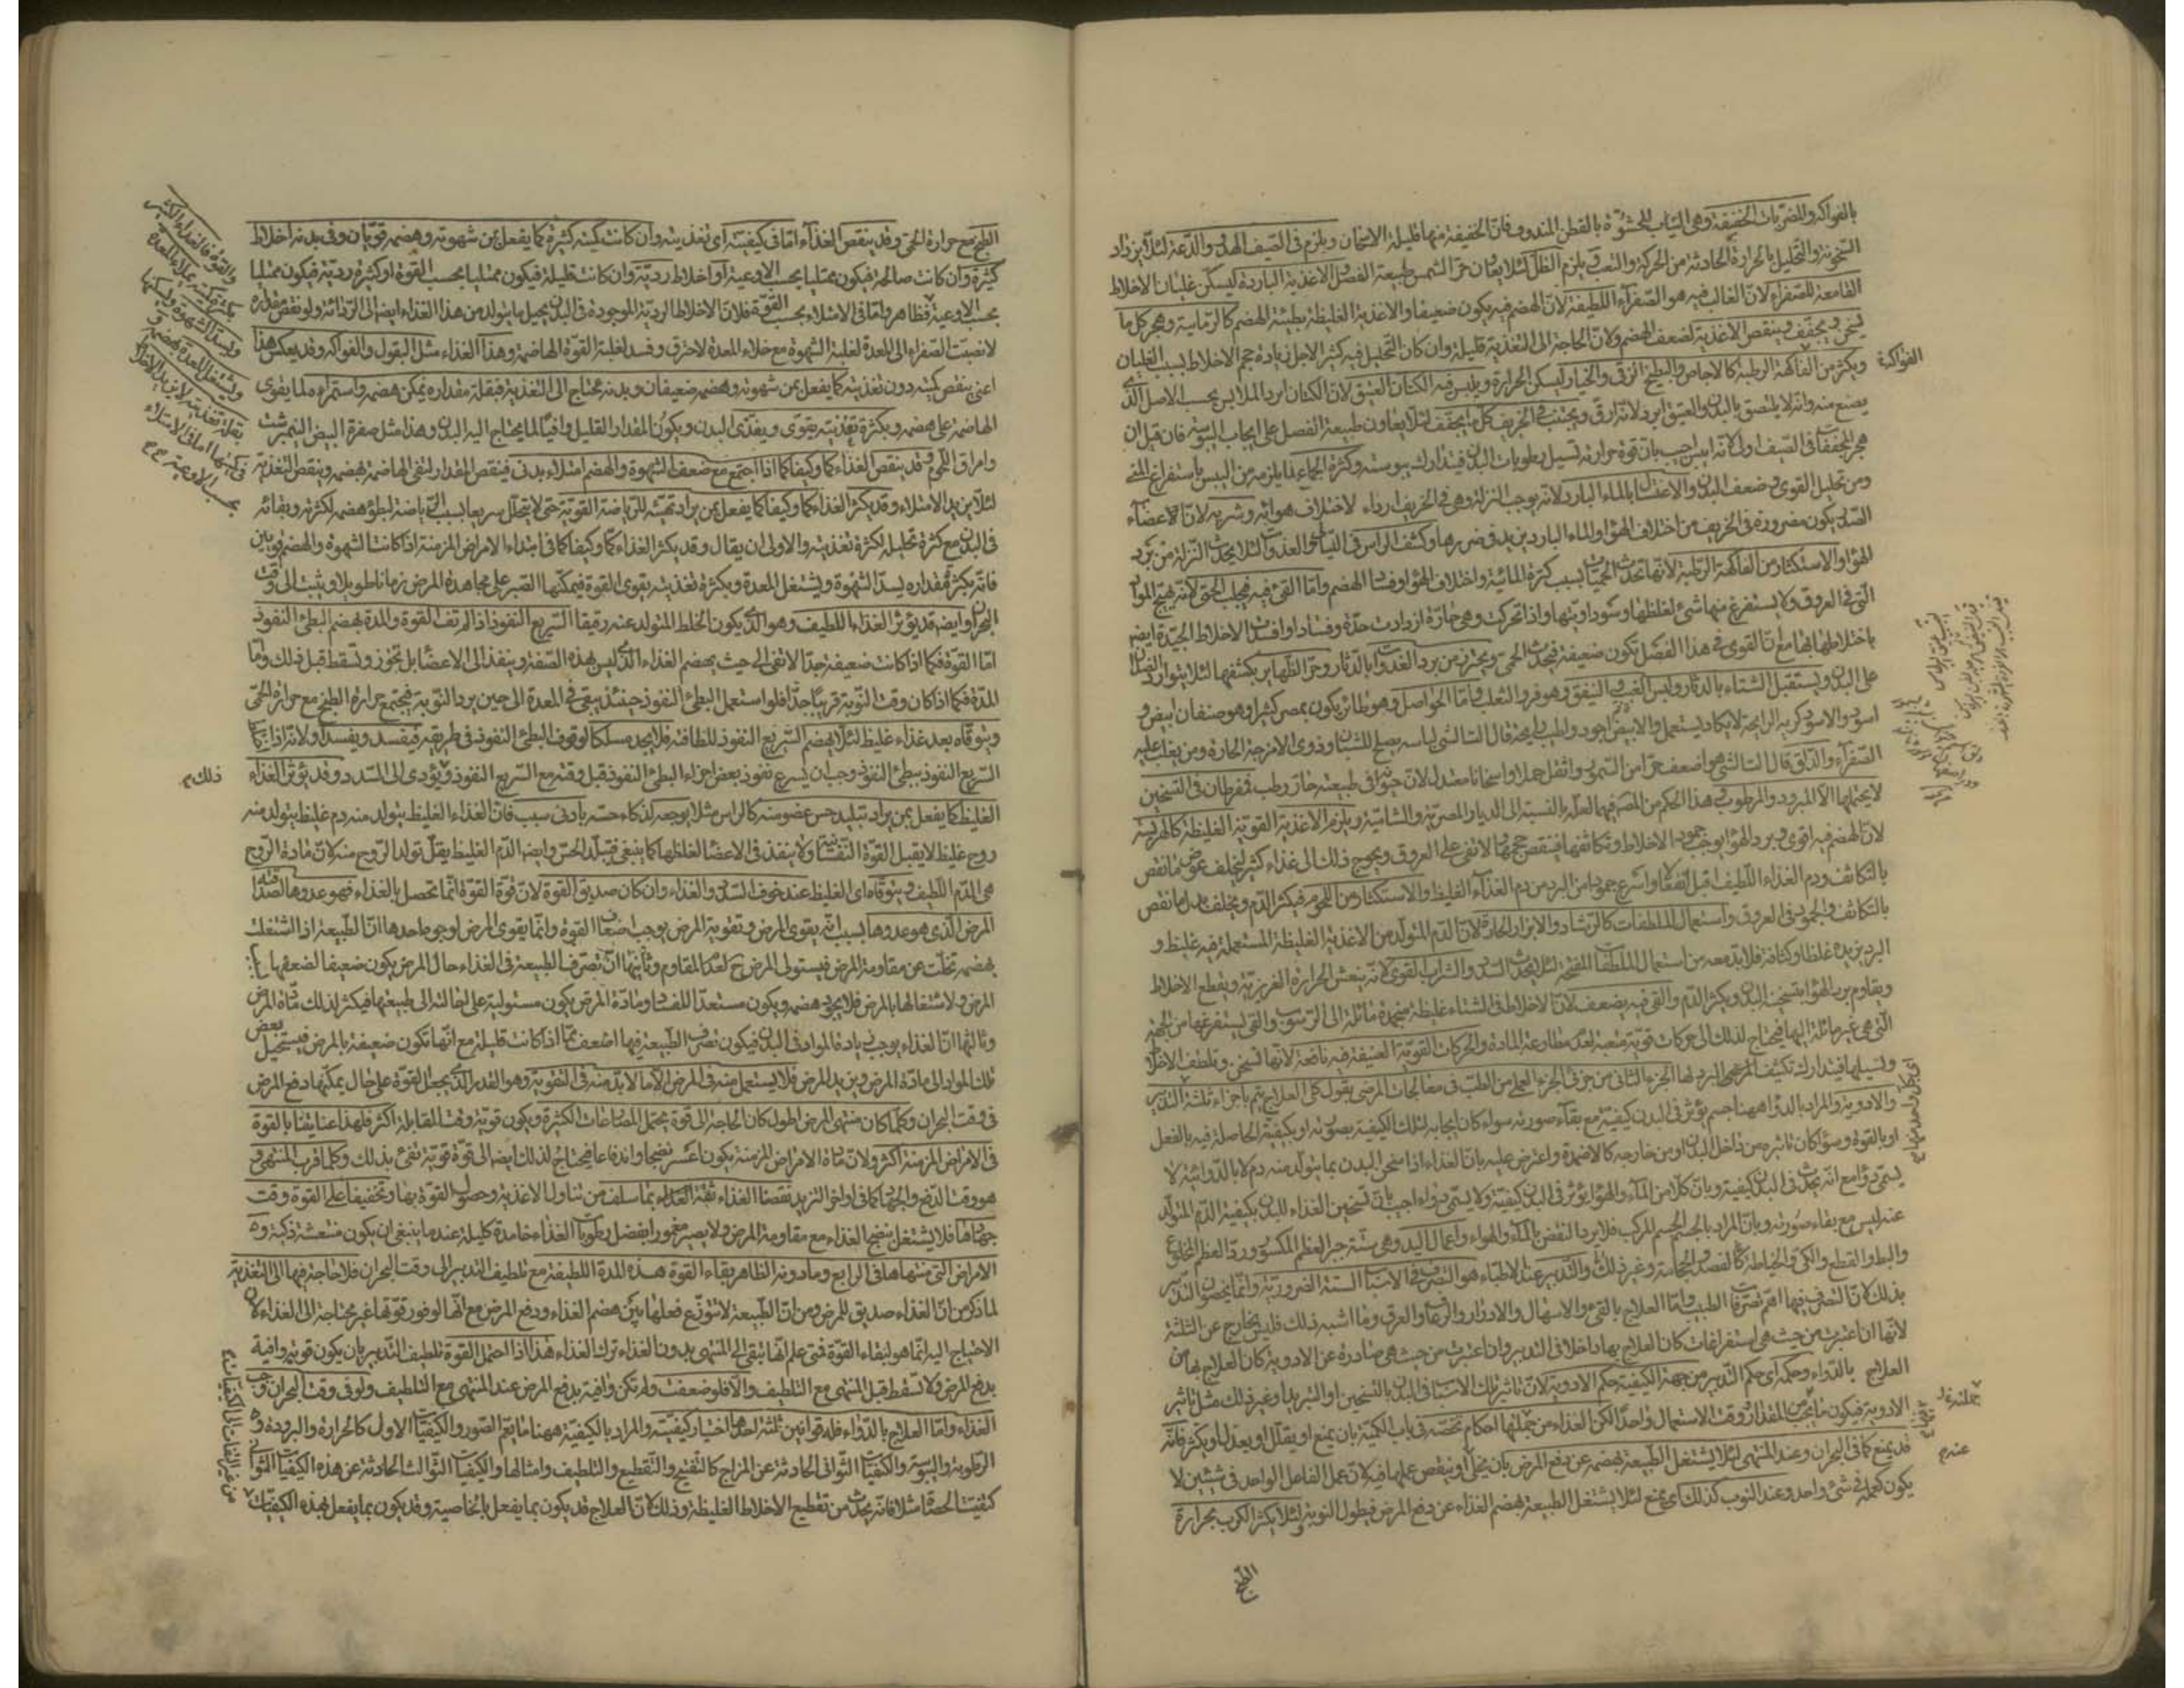 بالفواكه والمضربات الخفيفة وهى الثياب المحشوة بالقطن المندوف فان الخفيفة منها قليلة الاسخان ويلزم فى الصيف الهدو والدعة لئلا يزداد
السخونة والتحليل بالحرارة الحادثة من الحركة والتعب ويلزم الظل لئلا يعاون حر الشمس طبيعة الفصل والاغذية الباردة ليسكن غليان الاخلاط
القامعة للصفراء لان الغالب فيه هو الصفراء اللطيفة لان الهضم فيه يكون ضعيفا والاغذية الغليظة بطيئة الهضم كالرمانية ويهجر كل ما
يسخن ويجفف وينقص الاغذية لضعف الهضم ولان الحاجة الى التغذية قليلة وان كان التحليل فيه كثيرا لاجل زيادة حجم الاخلاط بسبب الغليان
ويكثر من الفاكهة الرطبة كالاجاص والبطيخ الرقى والخيار ليسكن الحرارة ويلبس فيه الكتان العتيق لان الكتان ابرد الملابس بحسب الاصل الذى
يصنع منه وانه لا يلتصق بالبدن والعتيق ابرد لانه ارق ويجتنب فى الخريف كل ما يجفف لئلا يعاون طبيعة الفصل على ايجاب اليبوسة فان قيل ان
هجر المجففات فى الصيف اولى لانه ايبس اجيب بان قوة حرارته تسيل رطوبات البدن فيتدارك يبوسته وكثرة الجماع لما يلزمه من اليبس باستفراغ المنى
ومن تحليل القوى وضعف البدن والاغتسال بالماء البارد لانه يوجب النزلة وهى فى الخريف ارداء لاختلاف هوائه وشربه لان الاعضاء
الصدر يكون مضرورة فى الخريف من اختلاف الهواء والماء البارد يزيد فى ضررها وكشف الراس فى الليالى والغدوات لئلا يحدث النزلة من برد
الهواء والاستكثار من الفاكهة الرطبة لانها تحدث الحميات بسبب كثرة المائية واختلاف الهواء وفساد الهضم واما القئ فيه فيجلب الحمى لانه يهيج المواد
التى فى العروق ولا يستفرغ منها شئ لغلظها وسوداويتها واذا تحركت وهى حارة ازدادت حدة وفسادا وافسدت الاخلاط الجيدة ايضا
باختلاطها بها مع ان القوى فى هذا الفصل تكون ضعيفة فيحدث الحمى ويحترز من برد الغدوات بالدثار وحر الظهاير بكشفها لئلا يتوارد الضدان
على البدن ويستقبل الشتاء بالدثار ولبس الغنب والنيفق وهو فرو الثعلب واما الحواصل وهو طائر يكون بمصر كثيرا وهو صنفان ابيض و
اسود والاسود كريه الرايحة لا يكاد يستعمل والابيض اجود واطيب رايحة قال لباسه يصلح للشبان وذوى الامزجة الحارة ومن يغلب عليه
الصفراء والدلق قال هو اضعف حرا من السمور واثقل حملا واسخانا معتدل لان حيوانه فى طبيعته حار رطب مفرطان فى التسخين
لا يحتملهما الا المبرود والمرطوب هذا الحكم من المصر فيهما لعله بالنسبة الى الديار المصرية والشامية ويلزم الاغذية القوية الغليظة كالهريسة
لان الهضم فيه اقوى وبرد الهواء يوجب جمود الاخلاط وتكاثفها فينقص حجمها ولا تفى على العروق ويحوج ذلك الى غذاء كثير ليخلف عوض ما نقص
بالتكاثف ودم الغذاء اللطيف اقبل انفعالا واسرع جمودا من البرد من دم الغذاء الغليظ والاستكثار من اللحوم فيكثر الدم ويخلف بدل ما نقص
بالتكاثف والجمود فى العروق واستعمال الملطفات كالرشاد والابزار الحارة لان الدم المتولد من الاغذية الغليظة المستعملة فيه غليظ و
البرد يزيده غلظا وكثافة فلا بد معه من استعمال الملطفات المفتحة لئلا يحدث السدد والشراب القوى لانه ينعش الحرارة الغريزية ويقطع الاخلاط
ويقاوم برد الهواء بتسخين البدن ويكثر الدم والقئ فيه يضعف لان الاخلاط فى الشتاء غليظة منجمدة مائلة الى الرسوب والقئ يستفرغها من الجهة
التى هى غير مائلة اليها فيحتاج لذلك الى حركات قوية متعبة لعدم مطاوعة المادة والحركات القوية العنيفة فيه نافعة لانها تسخن وتلطف الاخلاط
وتسيلها فيتدارك تكثيف البرد لها الجزء الثانى من جزئى الجزء العملى من الطب فى معالجات المرضى بقول كلى العلاج يتم باجزاء ثلثة التدبير
والادوية والمراد بالدواء ههنا جسم يؤثر فى البدن كيفية مع بقاء صورته سواء كان ايجابه لتلك الكيفية بصورته او بكيفية الحاصلة فيه بالفعل
او بالقوة وسواء كان تاثيره من داخل البدن او من خارجه كالاضمدة واعترض عليه بان الغذاء اذا سخن البدن بما يتولد منه دم كالدواء لا
يسمى دواء مع انه يحدث فى البدن كيفية وبان كلا من الماء والهواء يؤثر فى البدن كيفية ولا يسمى دواء اجيب بان تسخين الغذاء للبدن بكيفية الدم المتولد
عنه ليس مع بقاء صورته وبان المراد بالجسم الجسم المركب فلا يرد النقض بالماء والهواء واعمال اليد وهى ستة جبر العظم المكسور ورد العظم المخلوع
والبط والقطع والكى والخياطة كالفصد والحجامة وغير ذلك والتدبير عند الاطباء هو التصرف فى الاسباب الستة الضرورية وانما يخصون التدبير
بذلك لان التصرف فيها اهم تصرفا الطبيب واما العلاج بالقئ والاسهال والادرار والرعاف والعرق وما اشبه ذلك فليس بخارج عن الثلثة
لانها ان اعتبرت من حيث هى استفراغات كان العلاج بها داخلا فى التدبير وان اعتبرت من حيث هى صادرة عن الادوية كان العلاج بها من
العلاج بالدواء وحكمه اى حكم التدبير من جهة الكيفية حكم الادوية لان تاثير تلك الاسباب فى البدن بالتسخين او التبريد او غير ذلك مثل تاثير
الادوية فيكون ما يجب من المقدار ووقت الاستعمال واحدا لكن الغذاء من جملتها احكام تخصه فى باب الكمية بان يمنع او يقلل او يعدل او يكثر فانه
قد يمنع كما فى البحران وعند المنتهى لئلا يشتغل الطبيعة بهضمه عن دفع المرض بان يخل او ينقص عملها فيه لان عمل الفاعل الواحد فى شيئين لا
يكون كعمله فى شئ واحد وعند النوب كذلك اى يمنع لئلا يشتغل الطبيعة بهضم الغذاء عن دفع المرض فيطول النوبة ولئلا يكثر الكرب بحرارة
الطبخ
الفواكه
جملته
عندهم
الطبخ مع حرارة الحمى وقد ينقص الغذاء اما فى كيفيته اى تغذيته وان كانت كميته كثيرة كما يفعل بمن شهوته وهضمه قويان وفى بدنه اخلاط
كثيرة وان كانت صالحة فيكون ممتليا بحسب الاوعية او اخلاط ردية وان كانت قليلة فيكون ممتليا بحسب القوة او كثيرة ردية فيكون ممتليا
بحسب الاوعية فظاهر واما فى الامتلاء بحسب القوة فلان الاخلاط الردية الموجودة فى البدن يحيل ما يتولد من هذا الغذاء ايضا الى الردائة ولو نقص مقداره
لانصبت الصفراء الى المعدة لغلبة الشهوة مع خلاء المعدة لاحترق وفسد لغلبة القوة الهاضمة وهذا الغذاء مثل البقول والفواكه وقد يعكس هذا
اعنى ينقص كميته دون تغذيته كما يفعل بمن شهوته وهضمه ضعيفان وبدنه محتاج الى التغذية فبقلة مقداره يمكن هضمه واستمراءه لما يقوى
الهاضمة على هضمه وبكثرة تغذيته يقوى ويغذى البدن ويكون المقدار القليل وافيا لما يحتاج اليه البدن وهذا مثل صفرة البيض النيمبرشت
وامراق اللحوم وقد ينقص الغذاء كما وكيفا كما اذا اجتمع مع ضعف الشهوة والهضم امتلاء بدنى فينقص المقدار لتفى الهاضمة بهضمه وينقص التغذية
لئلا يزيد الامتلاء وقد يكثر الغذاء كما وكيفا كما يفعل بمن يراد تهيئه للرياضة القوية حتى لا يتحلل سريعا بسبب الرياضة لبطؤ هضمه لكثرته وبقائه
فى البدن مع كثرة تحليله لكثرة تغذيته والاولى ان يقال وقد يكثر الغذاء كما وكيفا كما فى ابتداء الامراض المزمنة اذا كانت الشهوة والهضم قويين
فانه بكثرة مقداره يسد الشهوة ويشتغل المعدة وبكثرة تغذيته يقوى القوة فيمكنها الصبر على مجاهدة المرض زمانا طويلا ويثبت الى وقت
البحران وايضا قد يؤثر الغذاء اللطيف وهو الذى يكون الخلط المتولد عنه رقيقا السريع النفوذ اذا لم تف القوة والمدة بهضم البطئ النفوذ
اما القوة فكما اذا كانت ضعيفة جدا لا تفى الى حيث يهضم الغذاء الذى ليس بهذه الصفة وينفذ الى الاعضاء بل تخور وتسقط قبل ذلك واما
المدة فكما اذا كان وقت النوبة قريبا جدا فلو استعمل البطئ النفوذ حينئذ يبقى فى المعدة الى حين يرد النوبة فيجتمع حرارة الطبخ مع حرارة الحمى
ويتوقاه بعد غذاء غليظ لئلا يهضم السريع النفوذ للطافته فلا يجد مسلكا لوقوف البطئ النفوذ فى طريقه فيفسد ويفسد ولانه اذا
السريع النفوذ ببطئ النفوذ وجب ان يسرع نفوذ بعض اجزاء البطئ النفوذ قبل وقته مع السريع النفوذ ويؤدى الى السدد وقد يؤثر الغذاء
الغليظ كما يفعل بمن يراد تبليد حس عضو منه كالراس مثلا يوجعه لذكاء حسه بادنى سبب فان الغذاء الغليظ يتولد منه دم غليظ يتولد منه
روح غليظ لا يقبل القوة النفسانية ولا ينفذ فى الاعضاء لغلظها كما ينبغى فيتبلد الحس وايضا الدم الغليظ يقل تولد الروح منه لان مادة الروح
هى الدم اللطيف ويتوقاه اى الغليظ عند خوف السدد والغذاء وان كان صديق القوة لان قوة القوة انما تحصل بالغذاء فهو عدوها لصداقته
المرض الذى هو عدوها بسبب انه يقوى المرض وتقوية المرض يوجب اضعاف القوة وانما يقوى المرض لوجوه احدها ان الطبيعة اذا اشتغلت
بهضمه تخلت عن مقاومة المرض فيستولى المرض ح لعدم المقاوم وثانيها ان تصرف الطبيعة فى الغذاء حال المرض يكون ضعيفا لضعفها
المرض ولاشتغالها بالمرض فلا يجود هضمه ويكون مستعدا للفساد ومادة المرض يكون مستولية على احالته الى طبيعتها فيكثر لذلك مادة المرض
وثالثها ان الغذاء يوجب زيادة المواد فى البدن فيكون تصرف الطبيعة فيها اضعف مما اذا كانت قليلة مع انها تكون ضعيفة بالمرض فيستحيل بعض
تلك المواد الى مادة المرض ويزيد المرض فلا يستعمل منه فى المرض الا ما لا بد منه فى التقوية وهو القدر الذى يجعل القوة على حال يمكنها دفع المرض
فى وقت البحران وكلما كان منتهى المرض اطول كان الحاجة الى قوة يحتمل المصارعات الكثيرة ويكون قوية وقت المقابلة اكثر فلهذا عنايتنا بالقوة
فى الامراض المزمنة اكثر ولان مادة الامراض المزمنة يكون اعسر نضجا واندفاعا فيحتاج لذلك ايضا الى قوة قوية تفئ بذلك وكلما اقرب المنتهى و
هو وقت الدفع والجهاد كما فى اواخر التزيد نقصنا الغذاء ثقة بما سلف من تناول الاغذية وحصول القوة بها وتخفيفا على القوة وقت
جهادها فلا يشتغل بنضج الغذاء مع مقاومة المرض ولا يصير مغمورا بفضل رطوبات الغذاء خامدة كليلة عندما ينبغى ان يكون منتعشة ذكية و
الامراض التى منتهاها فى الرابع وما دونه الظاهر بقاء القوة هذه المدة اللطيفة مع تلطيف التدبير الى وقت البحران فلا حاجة فيها الى التغذية
لما ذكر من ان الغذاء صديق للمرض ومن ان الطبيعة لا تتوزع فعلها بين هضم الغذاء ودفع المرض مع انها لوفور قوتها غير محتاجة الى الغذاء لان
الاحتياج اليه انما هو لبقاء القوة فمتى علم انها تبقى الى المنتهى بدون الغذاء ترك الغذاء هذا اذا احتمل القوة تلطيف التدبير بان يكون قوية وافية
بدفع المرض ولا تسقط قبل المنتهى مع التلطيف والا فلو ضعفت ولم تكن وافية بدفع المرض عند المنتهى مع التلطيف ولو فى وقت البحران وجب
الغذاء واما العلاج بالدواء فله قوانين ثلثة احدها اختيار كيفيته والمراد بالكيفية ههنا ما يعم الصور والكيفيات الاول كالحرارة والبرودة و
الرطوبة واليبوسة والكيفيات الثوانى الحادثة عن المزاج كالتفتيح والتقطيع والتلطيف وامثالها والكيفيات الثوالث الحادثة عن هذه الكيفيات الثوانى
كتفتيت الحصاة مثلا فانه يحدث من تقطيع الاخلاط الغليظة وذلك لان العلاج قد يكون بما يفعل بالخاصية وقد يكون بما يفعل بهذه الكيفيات
والقوة فان الغذاء الكثير
بكثرة كميته يملاء المعدة
ويسد الشهوة ويسكنها
ويشتغل المعدة بهضمه و
بقلة تغذيته لا يزيد الاخلاط
فى كميتها اما فى الامتلاء
بحسب الاوعية
ذلك
من غير التفات الى الكيفيات